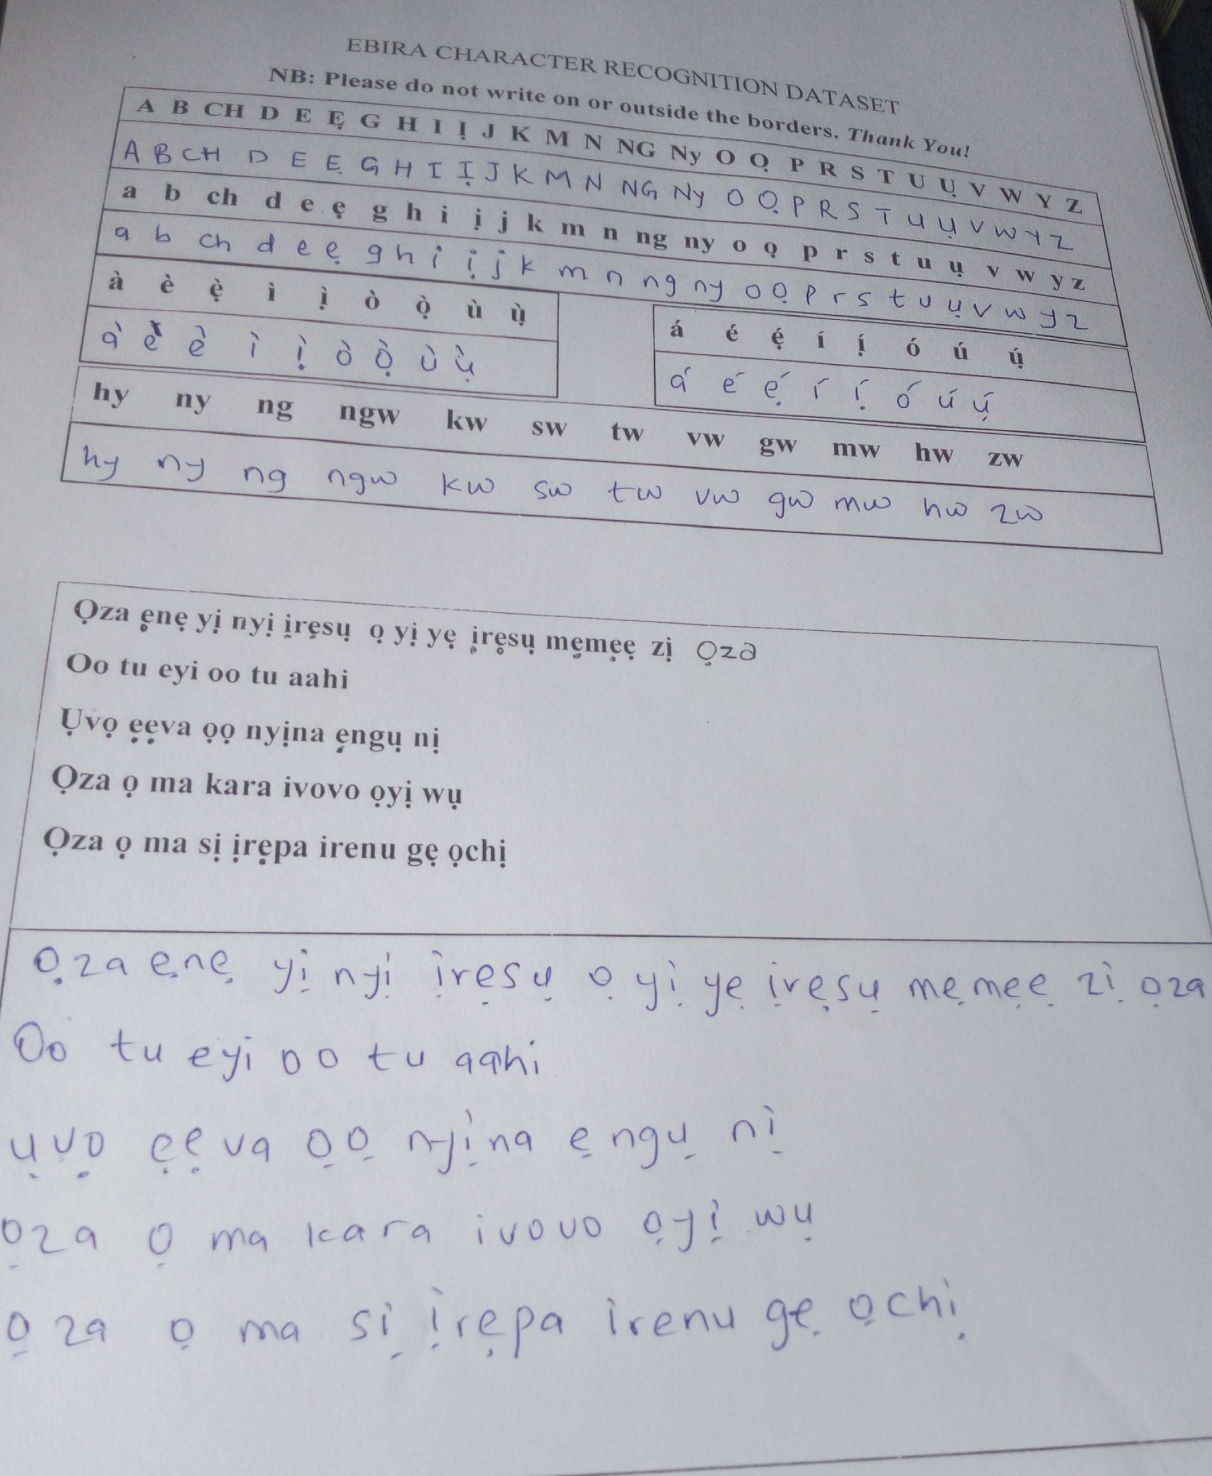 EBIRA CHARACTER RECOGNITION DATASET
NB: Please do not write on or outside the borders. Thank You!
A B CH D E Ẹ G H I Ị J K M N NG Ny O Ọ P R S T U Ụ V W Y Z
A B CH D E Ẹ G H I Ị J K M N NG Ny O Ọ P R S T U Ụ V W Y Z
a b ch d e ẹ g h i ị j k m n ng ny o ọ p r s t u ụ v w y z
a b ch d e ẹ g h i ị j k m n ng ny o ọ p r s t u ụ v w y z
à è ẹ̀ ì ị̀ ò ọ̀ ù ụ̀
à è ẹ̀ ì ị̀ ò ọ̀ ù ụ̀
á é ẹ́ í ị́ ó ú ụ́
á é ẹ́ í ị́ ó ú ụ́
hy ny ng ngw kw sw tw vw gw mw hw zw
hy ny ng ngw kw sw tw vw gw mw hw zw
Ọza ẹnẹ yị nyị ịrẹsụ ọ yị yẹ ịrẹsụ mẹmẹẹ zị ọza
Oo tu eyi oo tu aahi
Ụvọ ẹẹva ọọ nyịna ẹngụ nị
Ọza ọ ma kara ivovo ọyị wụ
Ọza ọ ma sị ịrẹpa irenu gẹ ọchị
Ọza ẹnẹ yị nyị ịrẹsụ ọ yị yẹ ịrẹsụ mẹmẹẹ zị ọza
Oo tu eyi oo tu aahi
ụvọ ẹẹva ọọ nyịna ẹngụ nị
ọza ọ ma kara ivovo ọyị wụ
ọza ọ ma sị ịrẹpa irenu gẹ ọchị